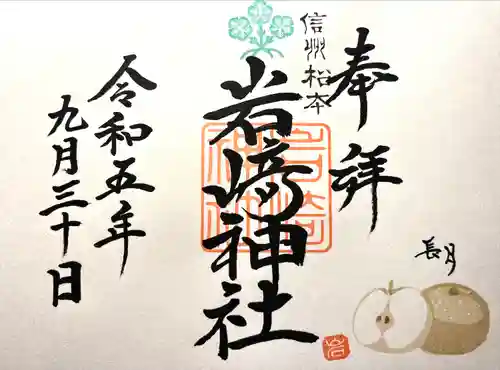 奉拝
信州松本
岩﨑神社
令和五年
九月三十日
長月
岩